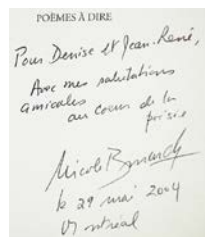 POÈMES À DIRE
Pour Denise et Jean-René,
Avec mes salutations
amicales
au coeur de la
poésie
Nicole Brossard
le 29 mai 2004
Montréal